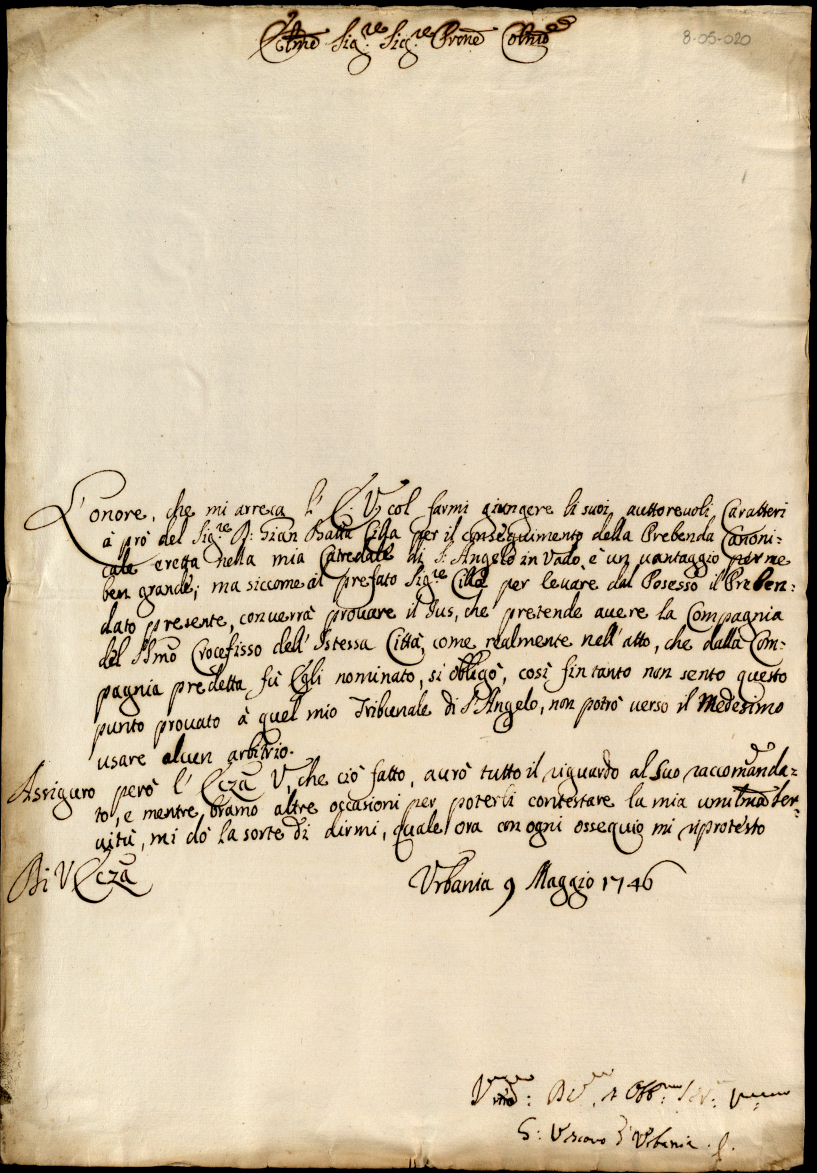 Ecmo Sig.re Sig.re Prone Colmo
8-05-020
L'onore, che mi arreca l'E. V. col farmi giungere li suoi auttorevoli Caratteri
à prò del Sig.re D. Gian Batta Cilla per il conseguimento della Prebenda Canoni=
cale eretta nella mia Catredale di S. Angelo in Vado, è un vantaggio per me
ben grande; ma siccome al prefato Sig.re Cilla per levare dal Posesso il Preben=
dato presente, converrà provare il Jus, che pretende avere la Compagnia
del SSmo Crocefisso dell'Istessa Città, come realmente nell'atto, che dalla Com=
pagnia predetta fù Egli nominato, si obligò, così fin tanto non sento questo
punto provato à quel mio Tribunale di S. Angelo, non potrò verso il Medesimo
usare alcun arbitrio.
Assiguro però l'Ecza V., che ciò fatto, avrò tutto il riguardo al suo raccomanda=
to, e mentre bramo altre occasioni per poterli contestare la mia umilma ser=
vitù, mi dò la sorte di dirmi, quale ora con ogni ossequio mi riprotesto
Di V. Ecza
Urbania 9 Maggio 1746
Obb.mo
G: Vescovo d'Urbania